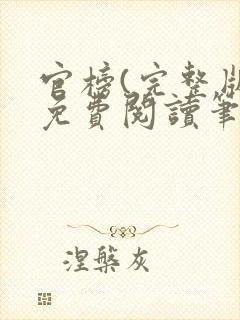 官榜(完整版
免費閱讀筆
涅槃灰